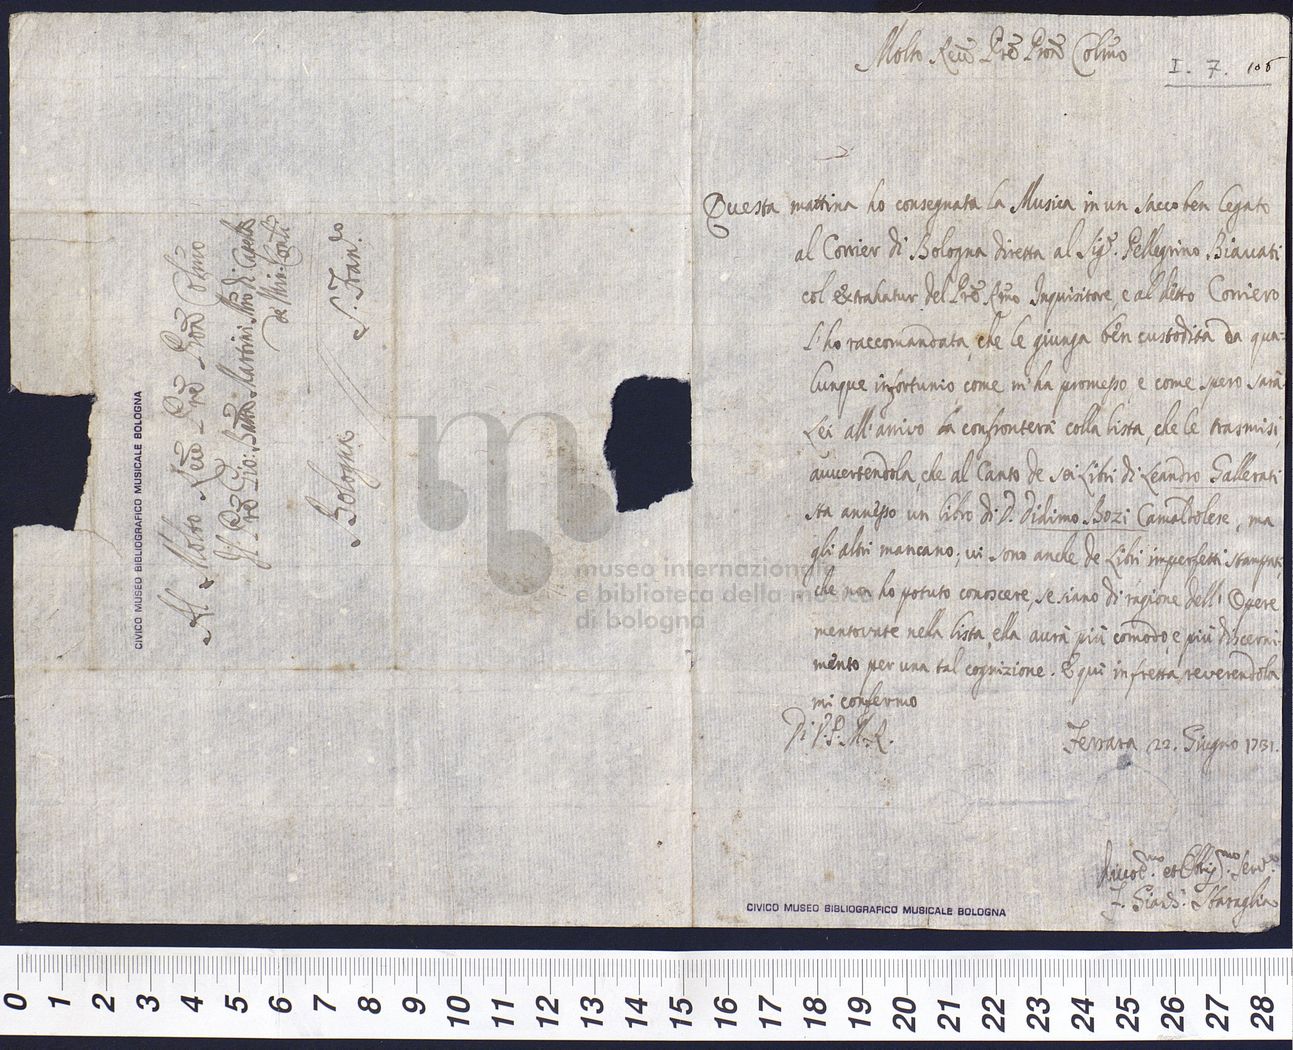 Molto Reu. Pre Pron Colmo
I. 7. 106
Questa mattina ho consegnata la Musica in un sacco ben legato
al Corrier di Bologna diretta al Sig. Pellegrino Biauati
col Extrahatur del Pre Rmo Inquisitore, e al detto Corriero
l'ho raccomandata, che le giunga ben custodita da qua-
lunque infortunio, come m'ha promesso, e come spero sarà.
Lei all'arriuo la confronterà colla lista, che le trasmisi,
auuertendola, che al Canto de sei Libri di Leandro Gallerati
sta annesso un libro di D. Didimo Bozi Camaldolese, ma
gli altri mancano; ui sono anche de Libri imperfetti stampati,
che non ho potuto conoscere, se siano di ragione dell' Opere
mentouate nella lista, ella aurà più comodo, e più discerni-
mento per una tal cognizione. E quì infretta, reverendola
mi confermo
Di V. P. M. R.
Ferrara 22. Giugno 1731.
Diuot.mo et Obblig.mo Seru.e
F. Giamb. Sbaraglia
Al Molto Reu Pre Pron Colmo
Il Pre Gio: Batta Martini Mro di Capella
de Min. Conti
S. Fran.co
Bologna
CIVICO MUSEO BIBLIOGRAFICO MUSICALE BOLOGNA
CIVICO MUSEO BIBLIOGRAFICO MUSICALE BOLOGNA
museo internazionale
e biblioteca della musica
di bologna
0 1 2 3 4 5 6 7 8 9 10 11 12 13 14 15 16 17 18 19 20 21 22 23 24 25 26 27 28